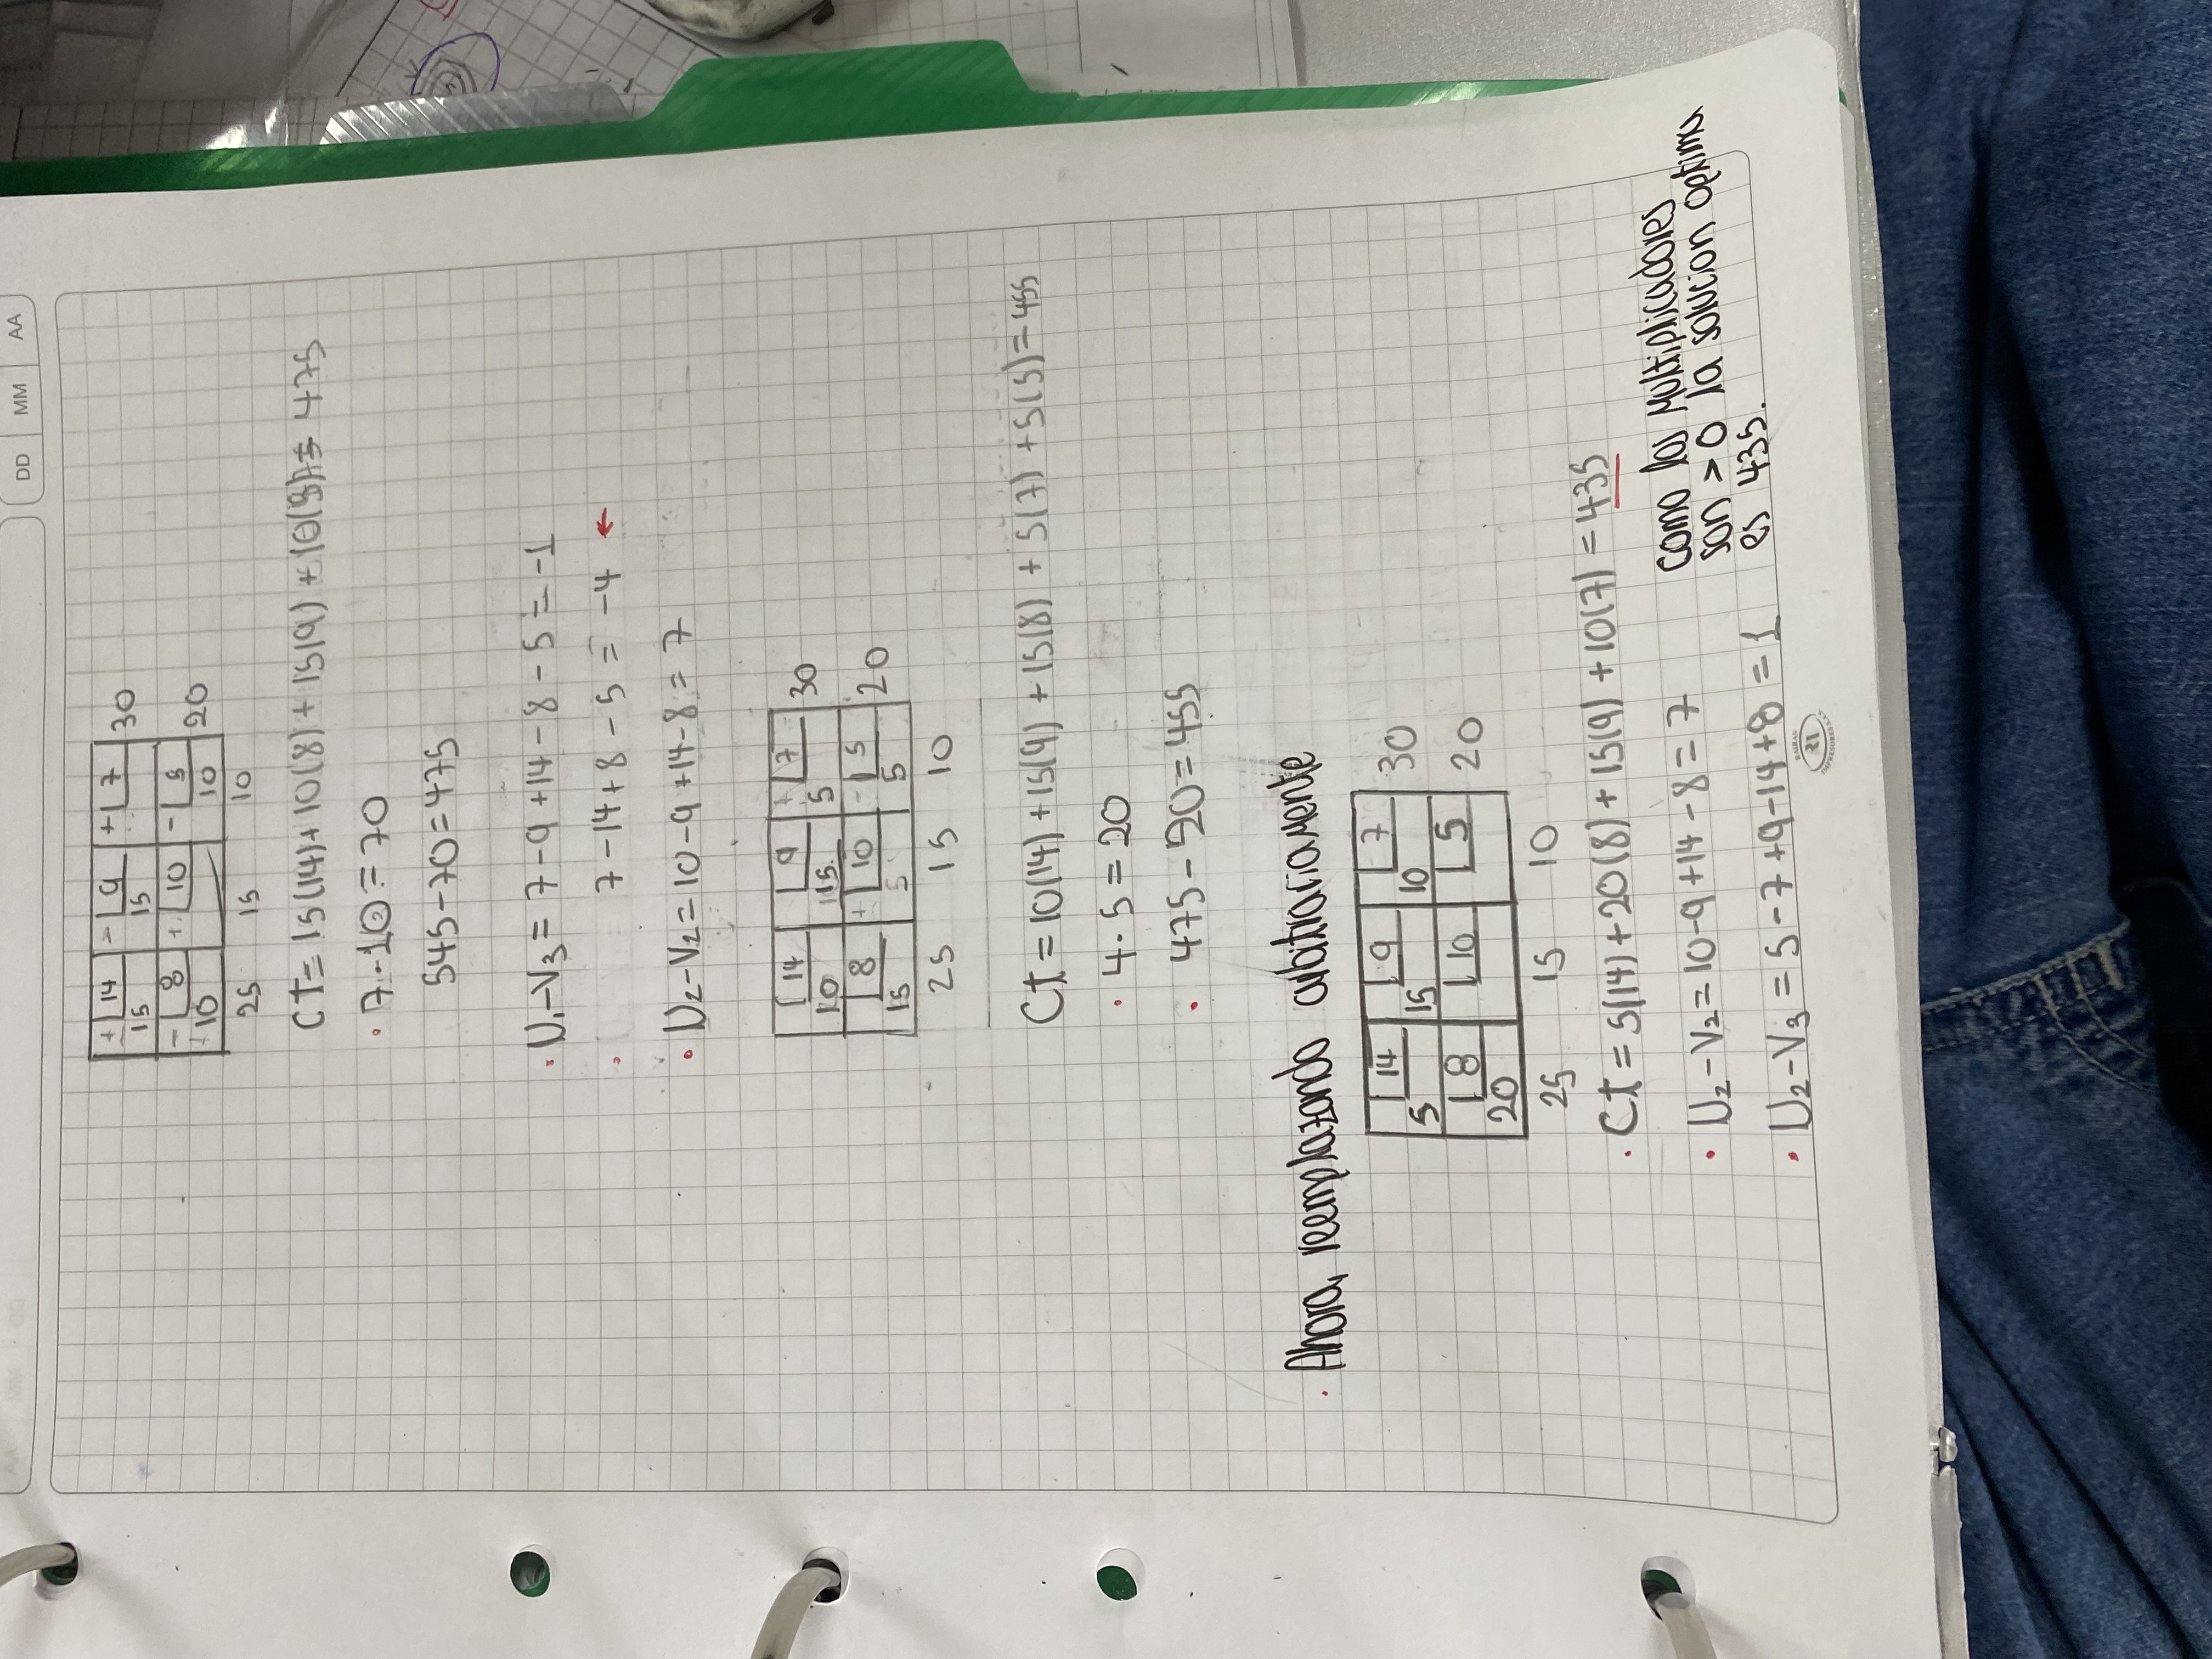 DD MM AA
+ 14 - 9 + 7 30
15 15
- 8 + 10 - 5 20
10 10
25 15 10
Ct = 15(14) + 10(8) + 15(9) + 10(5) = 475
7·10 = 70
545 - 70 = 475
U1-V3 = 7 - 9 + 14 - 8 - 5 = -1
7 - 14 + 8 - 5 = -4 ←
U2-V2 = 10 - 9 + 14 - 8 = 7
14 9 + 7 30
10 15 5
8 + 10 - 5 20
15 5 5
25 15 10
Ct = 10(14) + 15(9) + 15(8) + 5(7) + 5(5) = 455
4·5 = 20
475 - 20 = 455
Ahora, reemplazando arbitrariamente
14 9 7 30
5 15 10
8 10 5 20
20
25 15 10
Ct = 5(14) + 20(8) + 15(9) + 10(7) = 435
U2-V2 = 10-9+14-8 = 7
U2-V3 = 5-7+9-14+8 = 1
como los multiplicadores
son > 0 la solucion optima
es 435.